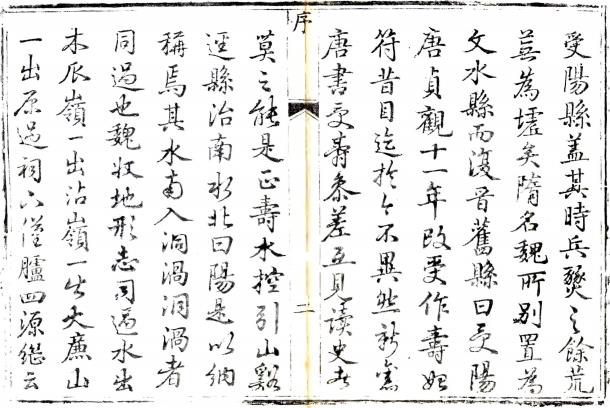 受陽縣蓋其時兵燹之餘荒
蕪為墟矣隋名魏所別置為
文水縣而復晉舊縣曰受陽
唐貞觀十一年改受作壽始
符昔目迄於今不異然新舊
唐書受壽參差互見讀史者
序
二
莫之能是正壽水控引山谿
逕縣治南水北曰陽是以納
稱焉其水南入洞渦洞渦者
同過也魏收地形志同過水出
木瓜嶺一出沾嶺一出大廉山
一出原過祠下僅臚四源繼云